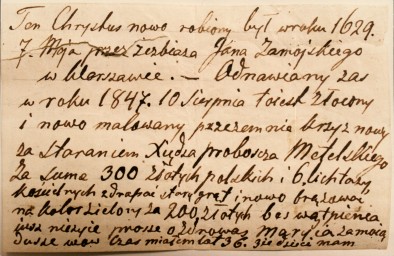 Ten Chrystus nowo robiony był wroku 1629.
7. Maja przez Rzezbiaza Jana Zamojskiego
w Warszawie. — Odnawiany zas
w roku 1847. 10 Sierpnia toiest złocony
i nowo malowany przezemnie krzyz nowy
za staraniem Xiędza proboscza Metelskiego
za sume 300 złotych polskich i 6. lichtarzy
kościelnych zdrapać stary grąt i nowo brązowai
na kolor zielony za 200 złotych bez wątpienia
iusz nieżyię prosze o zdrowaś Maryia zamoią
Dusze wow czas miałem lat 36. dzieci mam